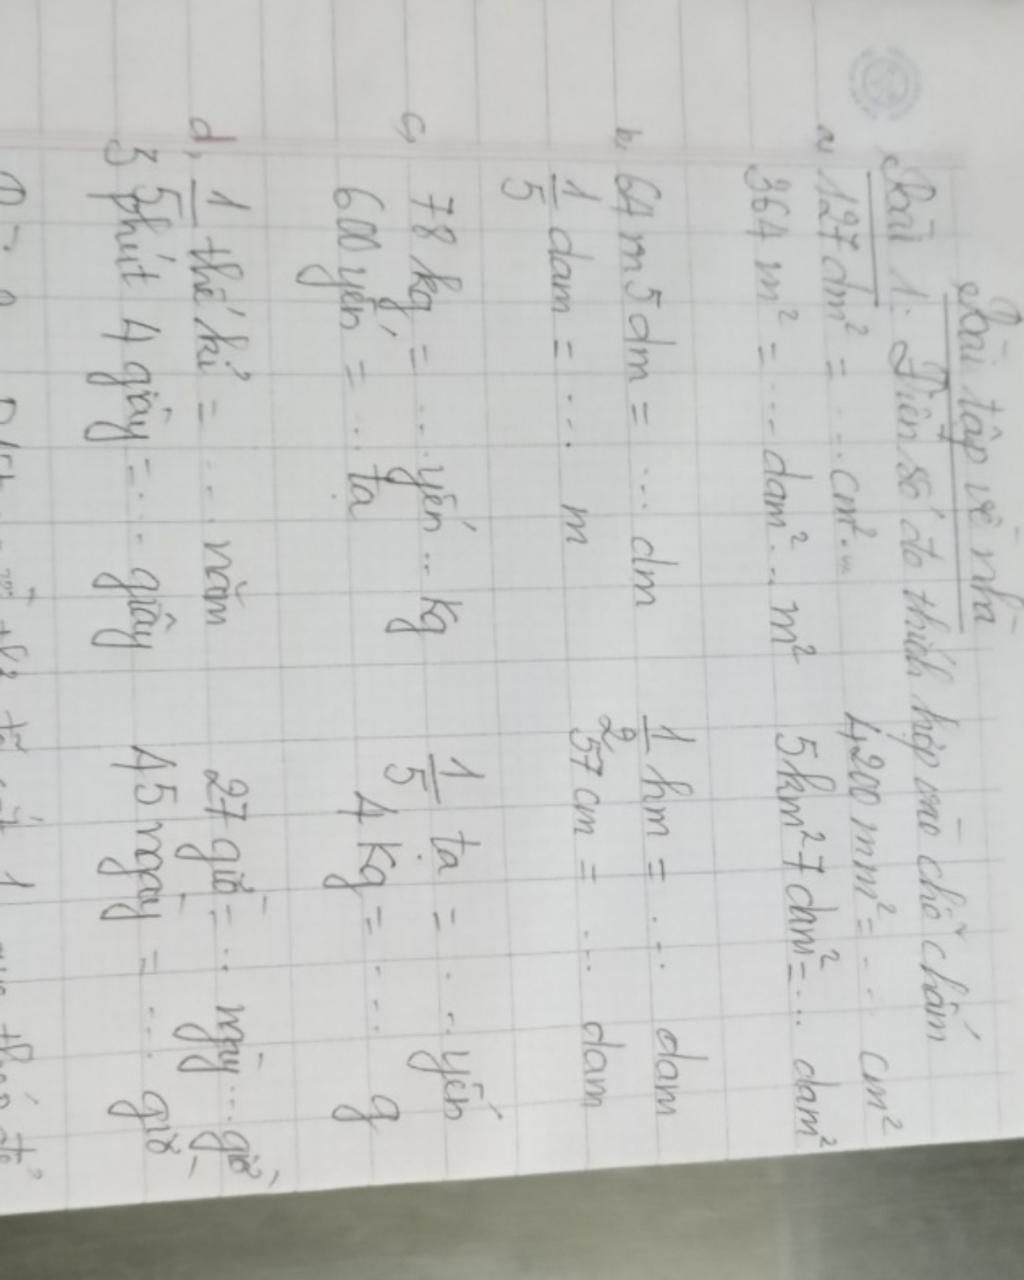 Bài tập về nhà
Bài 1: Điền số đo thích hợp vào chỗ chấm
a, 127dm² = ...cm² 4200 mm² = ... cm²
364 m² = ... dam² ... m² 5km² 7dam² = ... dam²
b, 64 m 5 dm = ... dm 1/2 hm = ... dam
1/5 dam = ... m 57 cm = ... dam
c, 78 kg = ... yến ... kg 1/5 tạ = ... yến
600 yến = ... tạ 4 kg = ... g
d, 1/5 thế kỉ = ... năm 27 giờ = ... ngày ... giờ
3 phút 4 giây = ... giây 45 ngày = ... giờ